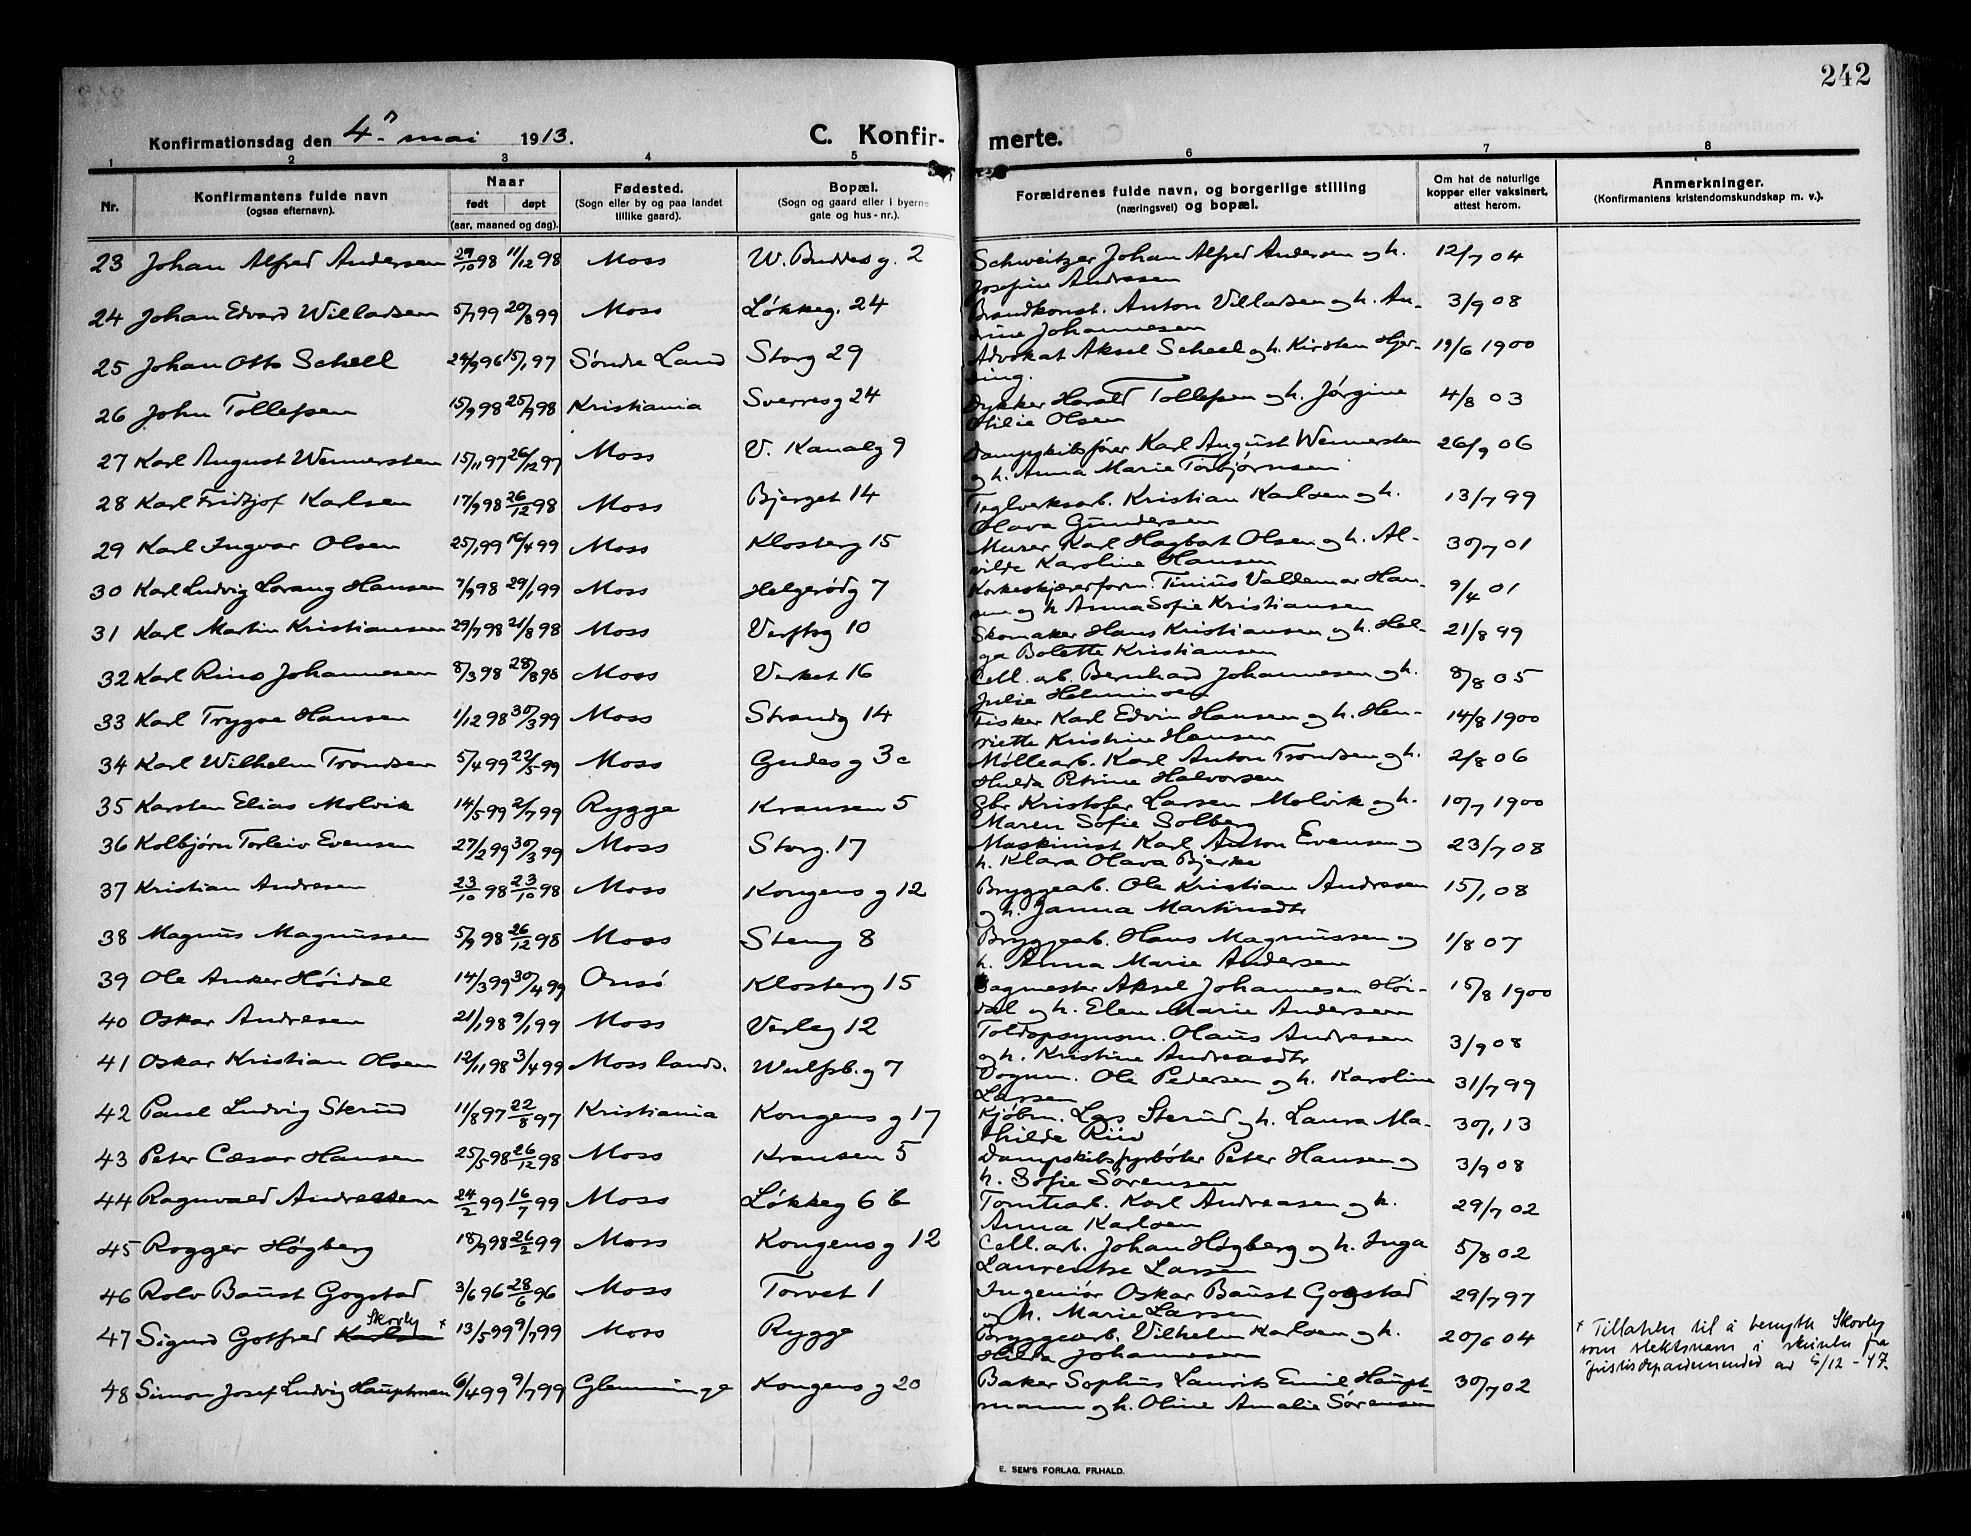 242
Konfirmationsdag den 4. mai 1913.
C. Konfirmerte.
1 2 3 4 5 6 7 8
Nr. Konfirmantens fulde navn (ogsaa efternavn). Naar født døpt (aar, maaned og dag). Fødested. (Sogn eller by og paa landet tillike gaard). Bopæl. (Sogn og gaard eller i byerne gate og hus-nr.). Forældrenes fulde navn, og borgerlige stilling (næringsvei) og bopæl. Om hat de naturlige kopper eller vaksinert, attest herom. Anmerkninger. (Konfirmantens kristendomskundskap m. v.).
23 Johan Alfred Andersen 29/10 98 11/12 98 Moss W. Buddesg. 2 Schweitzer Johan Alfred Andersen og h. 12/7 04
Josefine Andresen
24 Johan Edvard Willadsen 5/7 99 20/8 99 Moss Løkkeg. 24 Brandkonst. Anton Villadsen og h. An- 3/9 08
drine Johannesen
25 Johan Otto Scheel 24/9 96 15/1 97 Søndre Land Storg 29 Advokat Aksel Scheel og h. Kirsten Hjer- 19/6 1900
ing.
26 John Tollefsen 15/9 98 25/9 98 Kristiania Sverresg 24 Dykker Harald Tollefsen og h. Jørgine 4/8 03
Otilie Olsen
27 Karl August Wennersten 15/11 97 26/12 97 Moss V. Kanalg 9 Dampskibsfører Karl August Wennersten 26/9 06
og h. Anna Marie Torbjørnsen
28 Karl Fridtjof Karlsen 17/9 98 26/12 98 Moss Bjerget 14 Teglverksarb. Kristian Karlsen og h. 13/7 99
Olava Gundersen
29 Karl Ingvar Olsen 25/1 99 16/4 99 Moss Klosterg 15 Murer Karl Hagbart Olsen og h. Al- 30/7 01
vilde Karoline Hansen
30 Karl Ludvig Lorang Hansen 7/9 98 29/1 99 Moss Helgerødg 7 Korkeskjærerform. Tinius Valdemar Han- 9/4 01
sen og h Anna Sofie Kristiansen
31 Karl Martin Kristiansen 29/7 98 21/8 98 Moss Verftsg 10 Skomaker Hans Kristiansen og h. Hel- 21/8 99
ga Bolette Kristiansen
32 Karl Rino Johannesen 8/3 98 28/8 98 Moss Verket 16 Cell. arb. Bernhard Johannesen og h. 8/8 05
Julie
33 Karl Trygve Hansen 1/12 98 30/3 99 Moss Strandg 14 Fisker Karl Edvin Hansen og h. Hen- 14/8 1900
riette Kristine Hansen
34 Karl Wilhelm Trondsen 5/4 99 22/5 99 Moss Gudesg 3c Møllearb. Karl Anton Trondsen og h. 2/8 06
Hulda Petrine Halvorsen
35 Karsten Elias Molvik 14/5 99 2/7 99 Rygge Kransen 5 Gbr Kristofer Larsen Molvik og h. 10/7 1900
Maren Sofie Solberg
36 Kolbjørn Torleiv Evensen 27/2 99 30/3 99 Moss Storg. 17 Maskinist Karl Anton Evensen og 23/7 08
h. Klara Olava Bjerke
37 Kristian Andresen 23/10 98 23/10 98 Moss Kongens g 12 Bryggearb. Ole Kristian Andresen 15/1 08
og h. Janna Martinsdtr
38 Magnus Magnussen 5/9 98 26/12 98 Moss Steng 8 Bryggearb. Hans Magnussen og 1/8 07
h. Anna Marie Andersen
39 Ole Anker Høidal 14/3 99 30/4 99 Onsø Klosterg 15 Sagmester Aksel Johannesen Høi- 15/8 1900
dal og h. Elen Marie Andersen
40 Oskar Andresen 21/1 98 9/1 99 Moss Varleg 12 Toldopsynsm. Olaus Andresen 3/9 08
og h. Kristine Andreasdtr
41 Oskar Kristian Olsen 12/11 98 3/4 99 Moss lands. Wulfsb. g 7 Vognm. Ole Pedersen og h. Karoline 31/7 99
Larsen
42 Paul Ludvig Sterud 11/8 97 22/8 97 Kristiania Kongens g 17 Kjøbm. Lars Sterud og h. Laura Ma- 30/1 13
thilde Riis
43 Peter Cæsar Hansen 25/5 98 26/12 98 Moss Kransen 5 Dampskibsfyrbøter Peter Hansen og 3/9 08
h. Sofie Sørensen
44 Ragnvald Andreassen 24/2 99 16/7 99 Moss Løkkeg 6 b Tomtearb. Karl Andreasen og h. 29/7 02
Anna Karlsen
45 Rogger Høgberg 18/9 98 26/2 99 Moss Kongens g 12 Cell. arb. Johan Høgberg og h. Inga 5/8 02
Laurentse Larsen
46 Rolv Baust Gogstad 3/6 96 28/6 96 Moss Torvet 1 Ingeniør Oskar Baust Gogstad 29/7 97
og h. Marie Larsen
47 Sigurd Gotfred Karlsen Skovly × 13/5 99 9/7 99 Moss Rygge Bryggearb. Vilhelm Karlsen og h. 20/6 04
Hilda Johannesen
× Tillatelse til å benytte Skovly
som slektsnavn i skrivelse fra
Justisdepartementet av 5/12 - 47.
48 Simon Josef Ludvig Hauptman 6/4 99 9/7 99 Glemminge Kongens g 20 Baker Sophus Laurits Emil Haupt- 30/7 02
mann og h. Oline Amalie Sørensen
E. SEM'S FORLAG, FR.HALD.